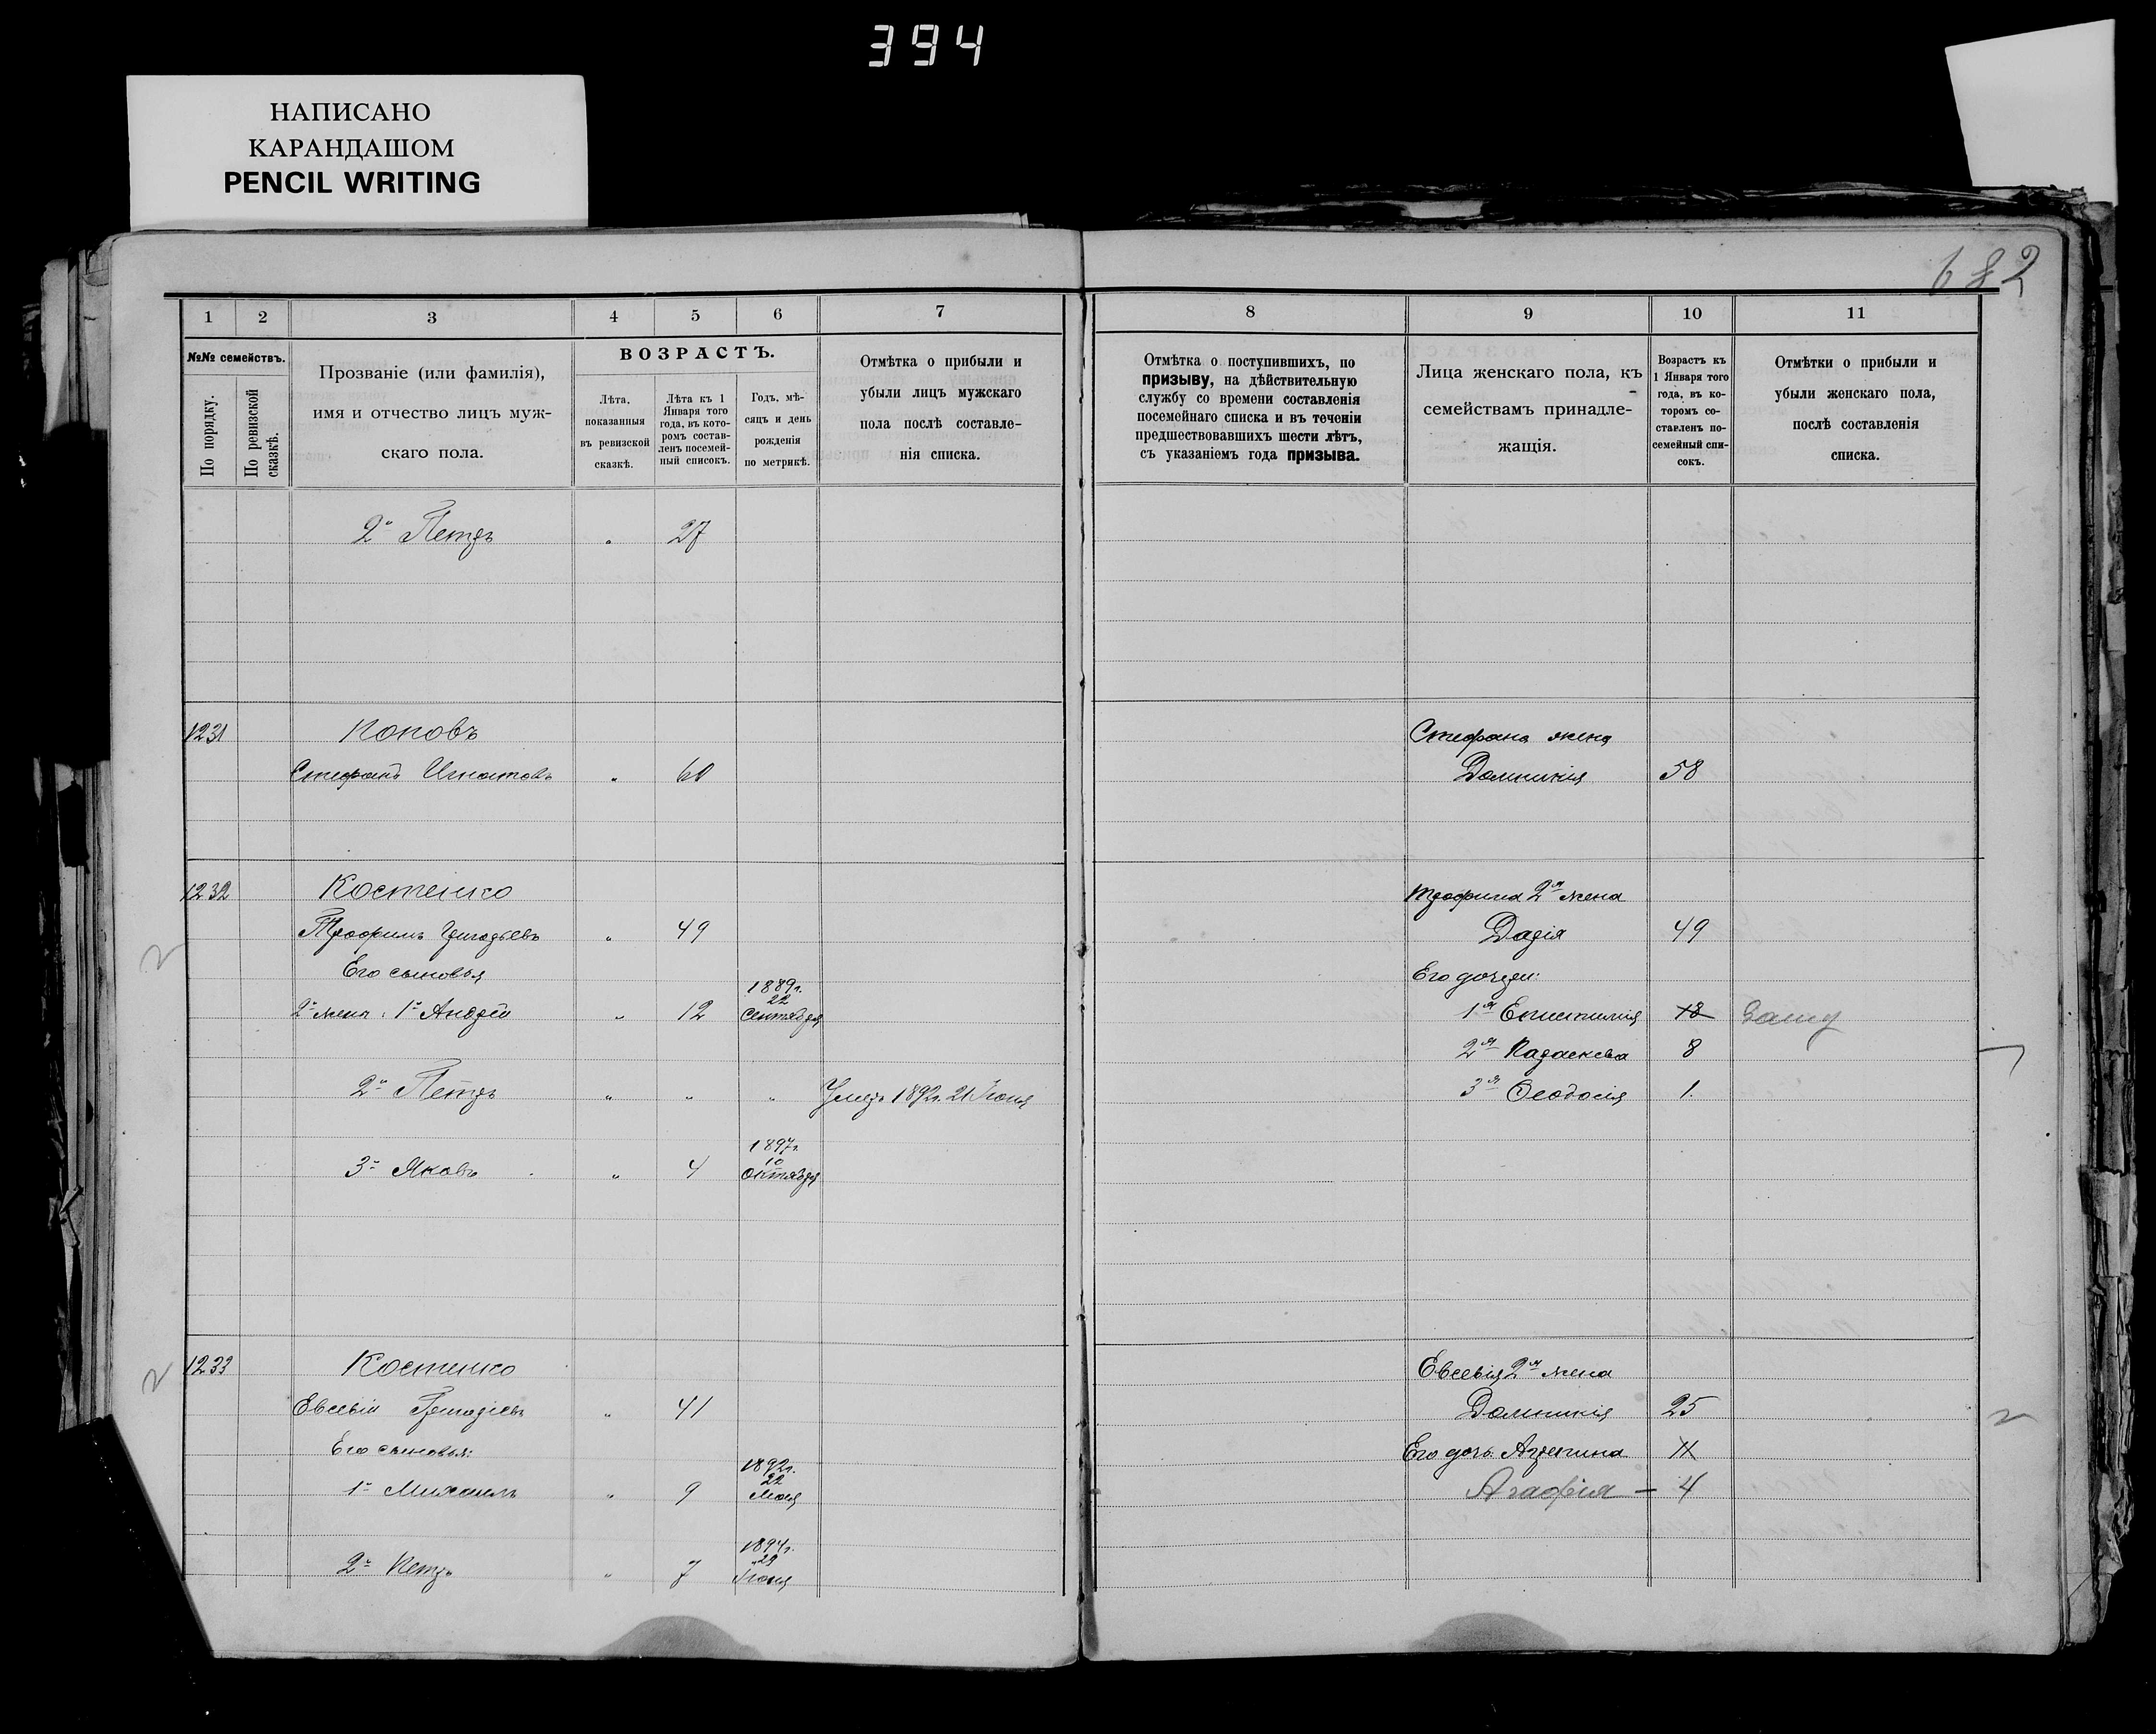 394
НАПИСАНО
КАРАНДАШОМ
PENCIL WRITING
682
1 2 3 4 5 6 7
№№ семействъ.
По порядку.
По ревизской сказкѣ.
Прозваніе (или фамилія),
имя и отчество лицъ муж-
скаго пола.
ВОЗРАСТЪ.
Лѣта,
показанныя
въ ревизской
сказкѣ.
Лѣта къ 1
Января того
года, въ кото-
ромъ состав-
ленъ посемей-
ный списокъ.
Годъ, мѣ-
сяцъ и день
рожденія
по метрикѣ.
Отмѣтка о прибыли и
убыли лицъ мужскаго
пола послѣ составле-
нія списка.
2й Петръ " 27
1231 Поповъ
Стефанъ Игнатовъ " 60
1232 Костенко
Трофимъ Григорьевъ " 49
Его сыновья
1889г.
22
2й жены: 1й Андрей " 12 Сентября
2й Петръ " " " Умеръ 1892г. 21 Іюня
1897г.
10
3й Яковъ " 4 Октября
1233 Костенко
Евсевій Григорьевъ " 41
Его сыновья:
1892г.
22
1й Михаилъ " 9 Мая
1894г.
29
2й Петръ " 7 Іюня
8 9 10 11
Отмѣтка о поступившихъ, по
призыву, на дѣйствительную
службу со времени составленія
посемейнаго списка и въ теченіи
предшествовавшихъ шести лѣтъ,
съ указаніемъ года призыва.
Лица женскаго пола, къ
семействамъ принадле-
жащія.
Возрастъ къ
1 Января того
года, въ ко-
торомъ со-
ставленъ по-
семейный спи-
сокъ.
Отмѣтки о прибыли и
убыли женскаго пола,
послѣ составленія
списка.
Стефана жена
Домникія 58
Трофима 2я жена
Дарія 49
Его дочери:
1я Епистимія 18 Замуж
2я Параскева 8
3я Ѳеодосія 1.
Евсевія 2я жена
Домникія 25
Его дочь Агрепина 11
Агафія — 4